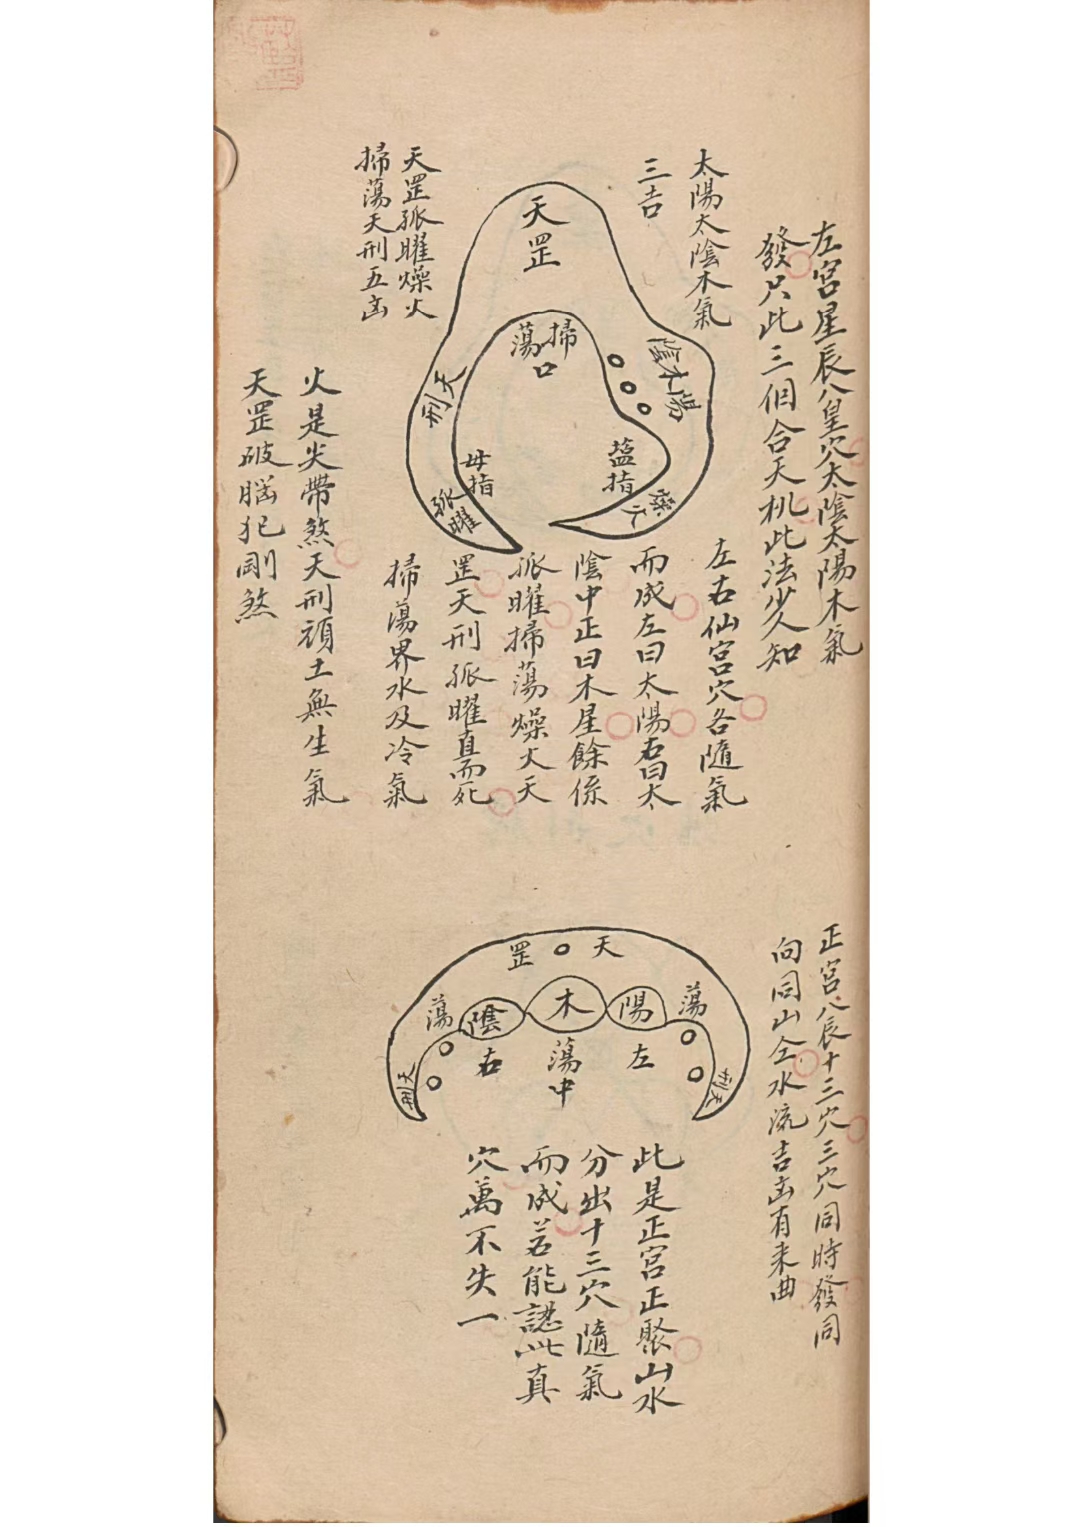 左宮星辰八皇穴太陰太陽木氣
發只此三個合天机此法少人知
太陽太陰木氣
三吉
天罡
掃蕩
口
陰木陽
燥火
天刑
孤曜
母指
盐指
天罡孤曜燥火
掃蕩天刑五凶
左右仙宮穴各隨氣
而成左曰太陽右曰太
陰中正曰木星餘係
孤曜掃蕩燥火天
罡天刑孤曜直而死
掃蕩界水及冷氣
火是尖帶煞天刑頑土無生氣
天罡破腦犯剛煞
正宮八辰十三穴三穴同時發同
向同山仝水流吉凶有来曲
天罡
蕩
陽
木
陰
蕩
左
蕩中
右
天刑
天刑
此是正宮正聚山水
分出十三穴隨氣
而成若能認此真
穴萬不失一